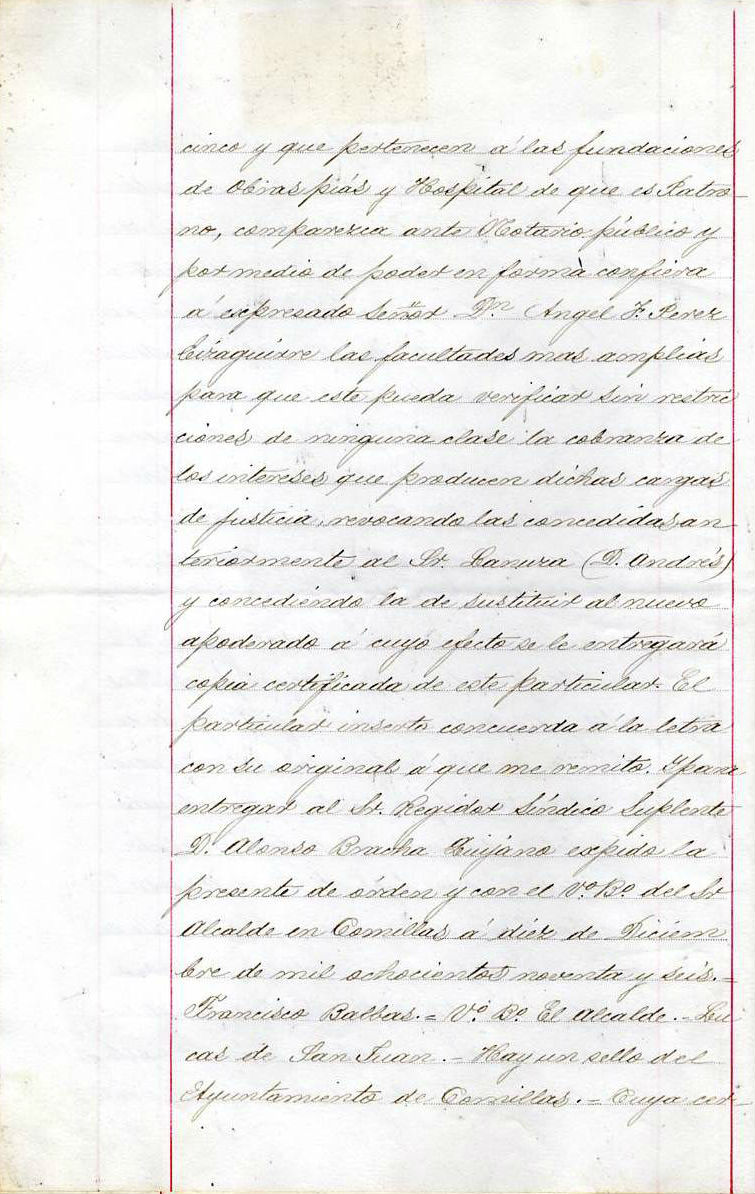 cinco y que pertenecen á las fundaciones
de Obras piás y Hospital de que es Patro-
no, comparezca ante Notario público y
por medio de poder en formà confiera
á expresado Señor Dn. Angel F. Perez
Eizaguirre las facultades mas amplias
para que este pueda verificar sin restric
ciones de ninguna clase la cobranza de
los intereses que producen dichas cargas
de justicia, revocando las concedidas an-
teriormente al Sr. Lanuza (D. Andrés)
y concediéndo la de sustituir al nuevo
apoderado á cuyo efecto se le entregará
copia certificada de este particular. El
particular inserto concuerda á la letra
con su original á que me remito. Y para
entregar al Sr. Regidor Síndico Suplente
D. Alonso Bracha Quijano expido la
presente de órden y con el Vº. Bº. del Sr
Alcalde en Comillas á diéz de Diciem
bre de mil ochocientos noventa y seis.=
Francisco Balbas.= Vº. Bº. El Alcalde.= Lu
cas de San Juan.= Hay un sello del
Ayuntamiento de Comillas.= Cuya cer-